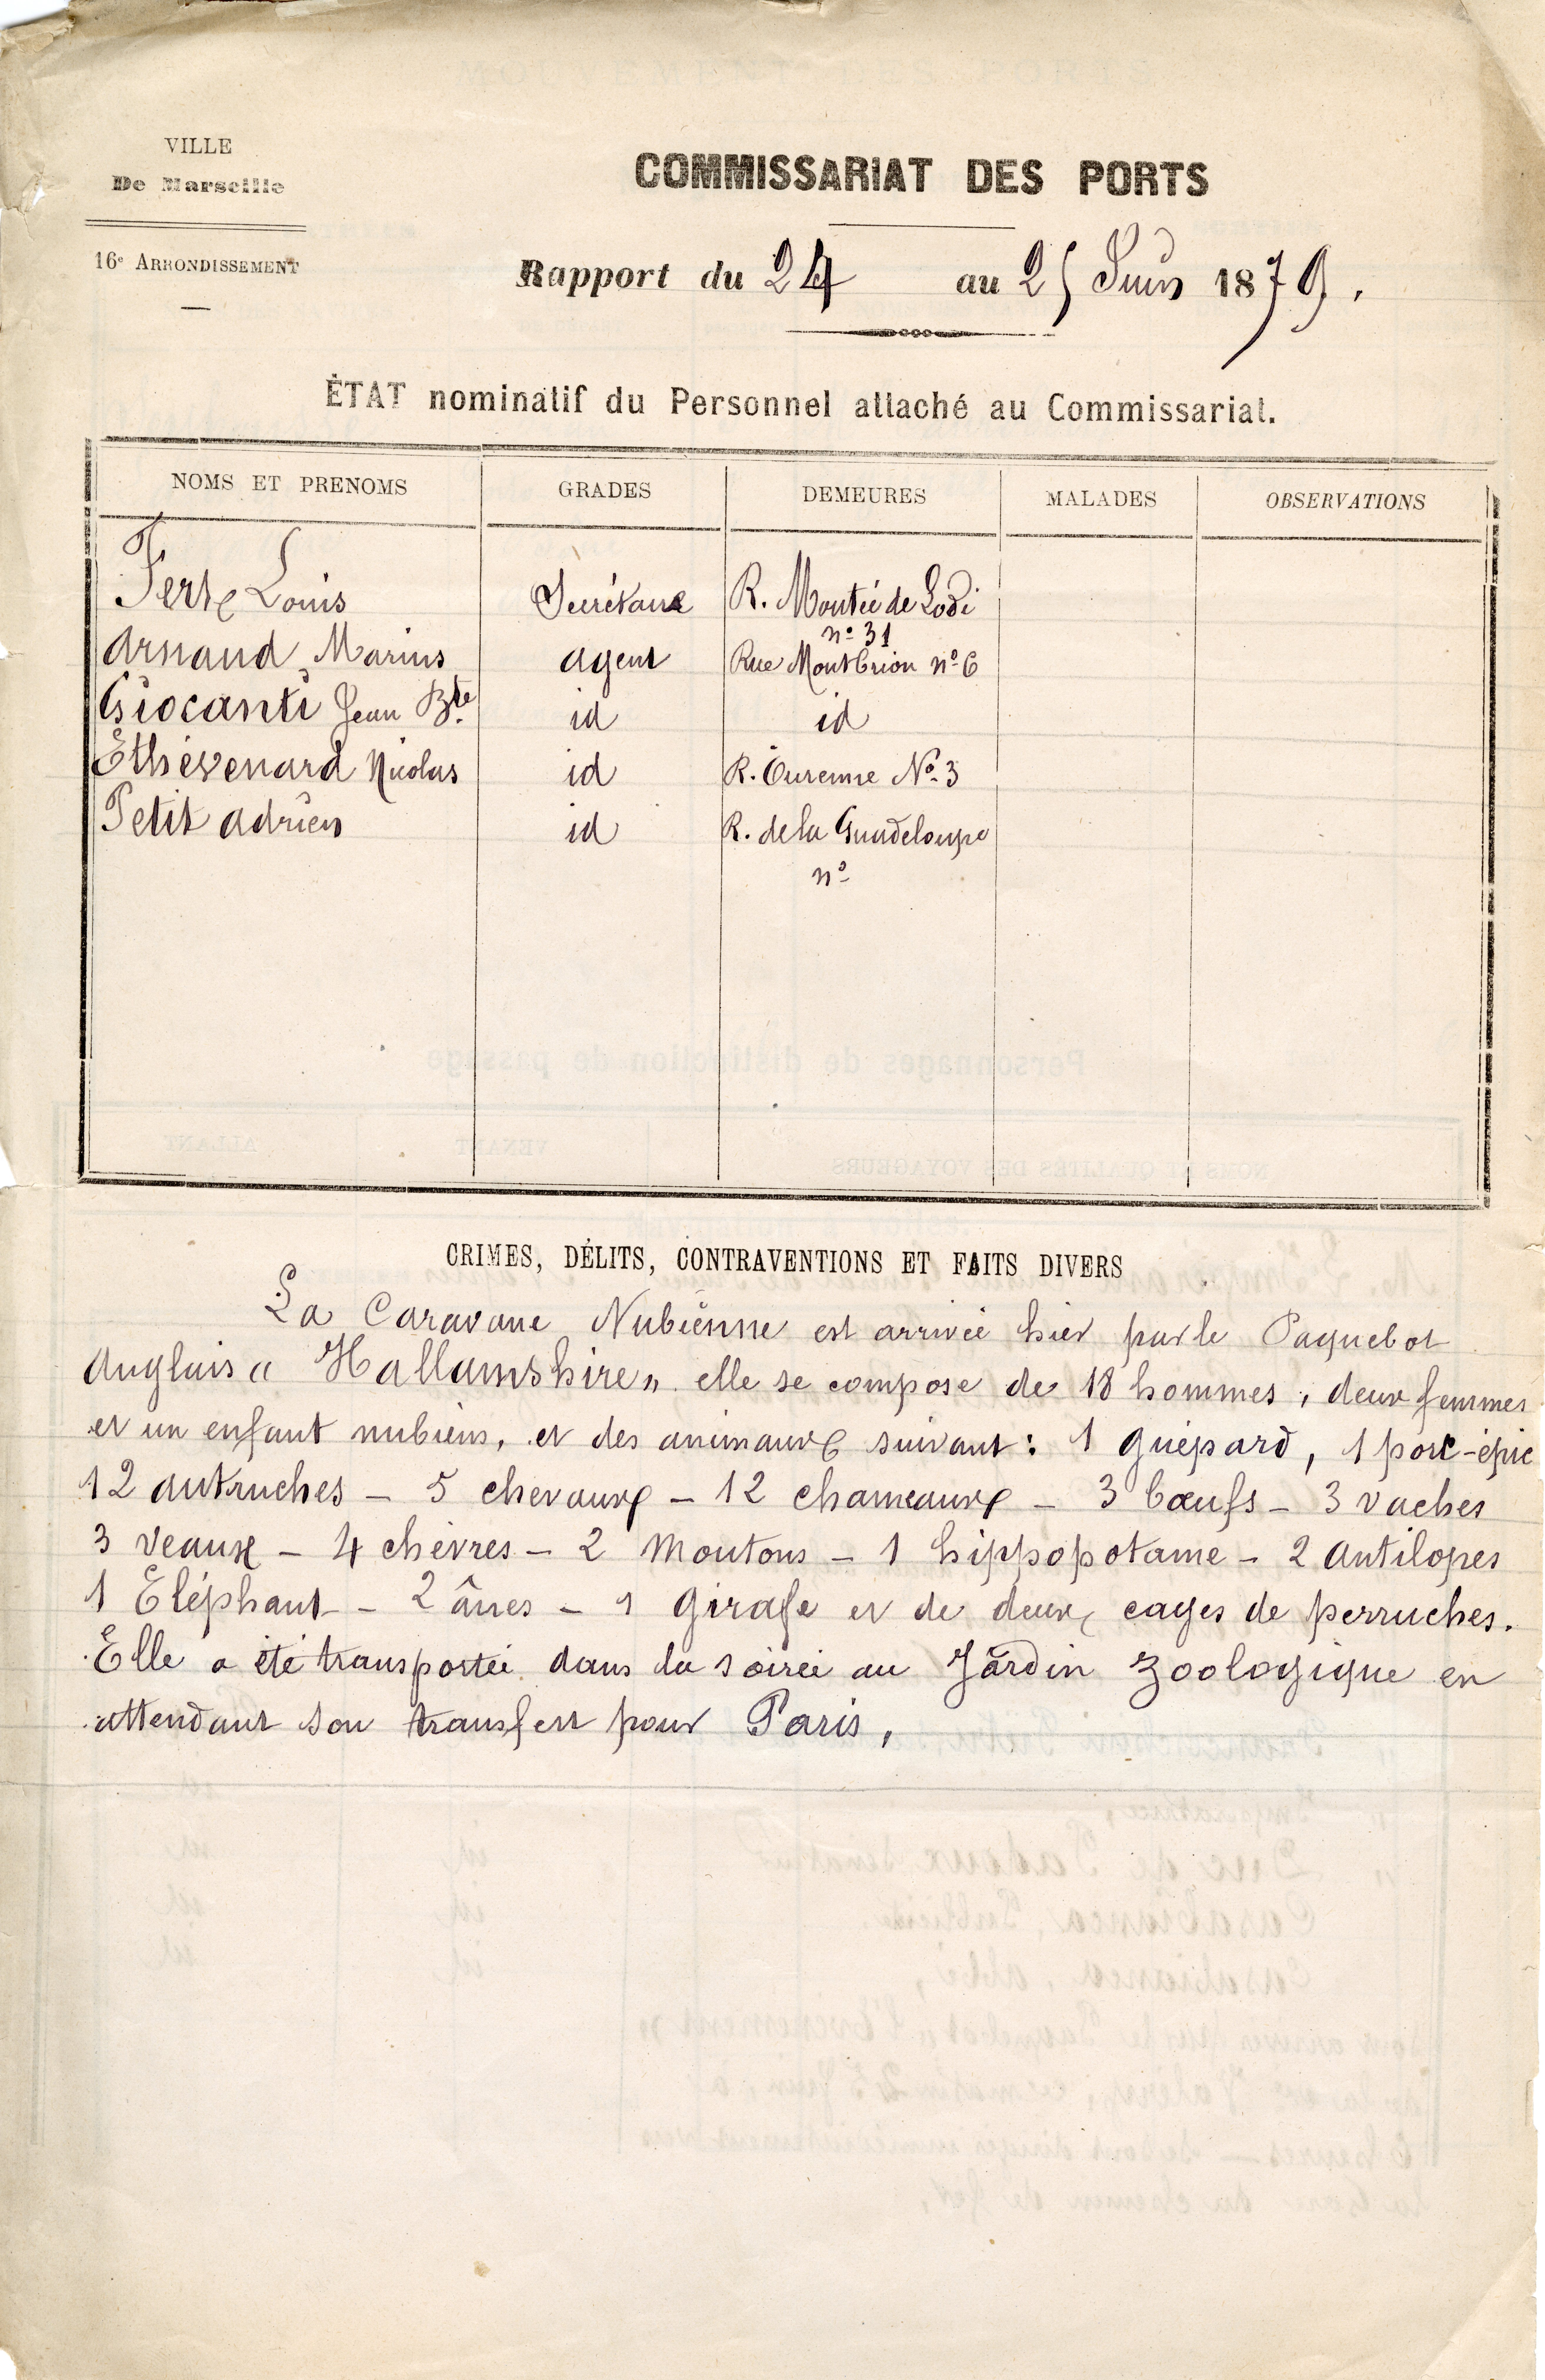 VILLE
De Marseille
16e ARRONDISSEMENT
COMMISSARIAT DES PORTS
Rapport du 24 au 25 Juin 1879.
ÉTAT nominatif du Personnel attaché au Commissariat.
NOMS ET PRENOMS GRADES DEMEURES MALADES OBSERVATIONS
Louis Secrétaire R. Montée de Lodi
no 31
Arnaud Marius agent Rue Montbrion no 6
Giocanti Jean Bte. id id
Ethévenard Nicolas id R. Turenne No. 3
Petit Adrien id R. de la Guadeloupe
no
CRIMES, DÉLITS, CONTRAVENTIONS ET FAITS DIVERS
La Caravane Nubienne est arrivée hier par le Paquebot
Anglais « Hallamshire » elle se compose de 18 hommes, deux femmes
et un enfant nubiens, et des animaux suivant : 1 guépard, 1 porc-épic
12 autruches - 5 chevaux - 12 chameaux - 3 bœufs - 3 vaches
3 veaux - 4 chèvres - 2 moutons - 1 hippopotame - 2 antilopes
1 Eléphant - 2 ânes - 1 girafe et de deux cages de perruches.
Elle a été transportée dans la soirée au Jardin Zoologique en
attendant son transfert pour Paris,